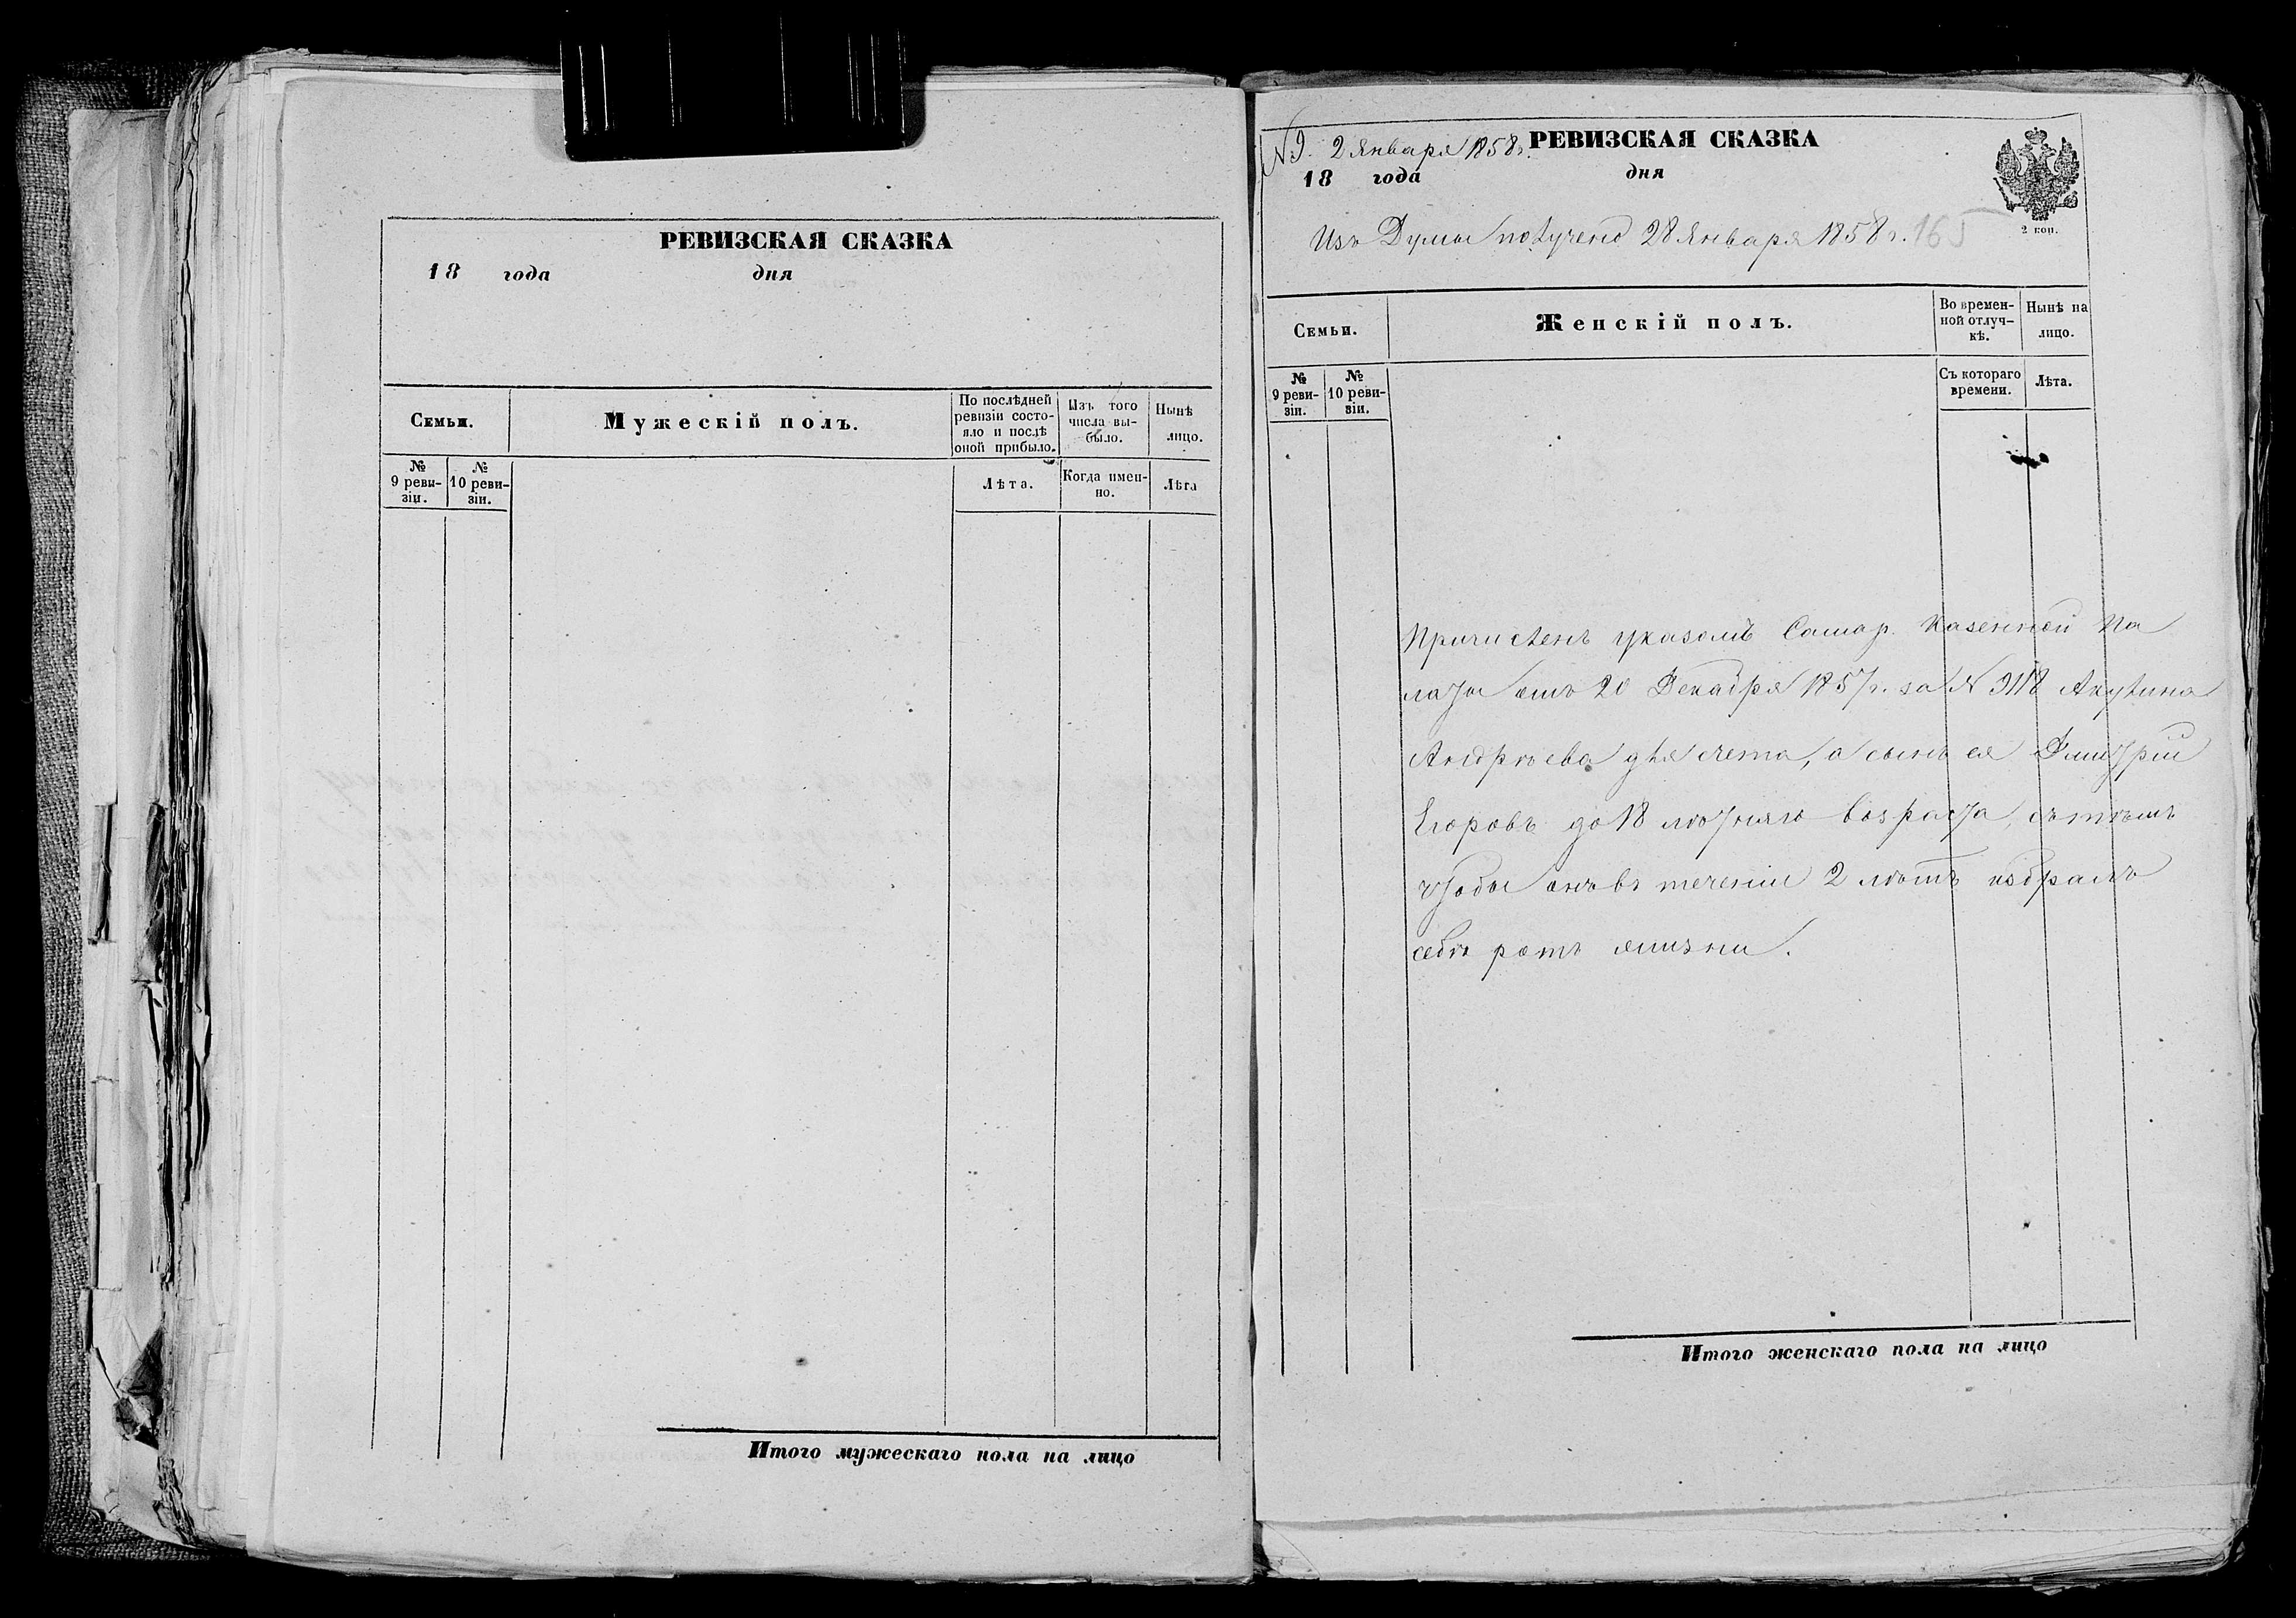 РЕВИЗСКАЯ СКАЗКА
18 года дня
Семьи.
Мужескій полъ.
По послѣдней ревизіи состо-
яло и послѣ
оной прибыло.
Изъ того
числа вы-
было.
Нынѣ
лицо.
№
9 реви-
зіи.
№
10 реви-
зіи.
Лѣта.
Когда имен-
но.
Лѣта
Итого мужескаго пола на лицо
№9. 2 Января 1858 г. РЕВИЗСКАЯ СКАЗКА
18 года дня
Изъ Думы получено 28 Января 1858 г. 165
2 коп.
Семьи.
Женскій полъ.
Во времен-
ной отлуч-
кѣ.
Нынѣ на
лицо.
№
9 реви-
зіи.
№
10 реви-
зіи.
Съ котораго
времени.
Лѣта.
Причисленъ указомъ Самар. Казенной Па
латы отъ 20 Декабря 1857 г. за № 3118 Акулина
Андрѣева для счета, а сынъ ея Дмитрій
Егоровъ до 18 лѣтняго возраста, съ тѣмъ
чтобы онъ въ теченіи 2 лѣтъ избралъ
себѣ родъ жизни.
Итого женскаго пола на лицо